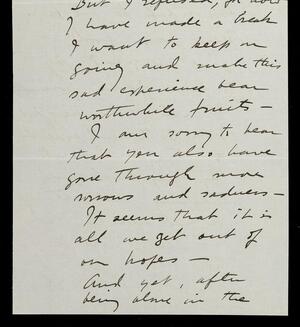 But I refused, for now
I have made a break
I want to keep on
going and make this
sad experience bear
worthwhile fruits –
I am sorry to hear
that you also have
gone through more
sorrows and sadness –
It seems that it is
all we get out of
our hopes –
And yet, after
being alone in the